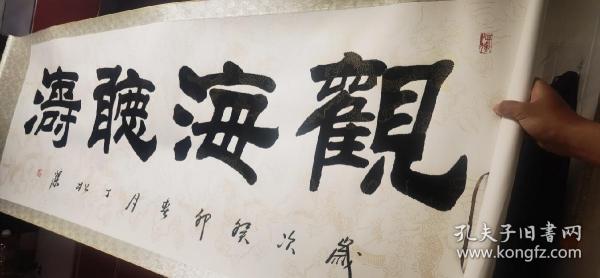 觀海聽濤
歲次癸卯春月丁
孔夫子旧书网
www.kongfz.com